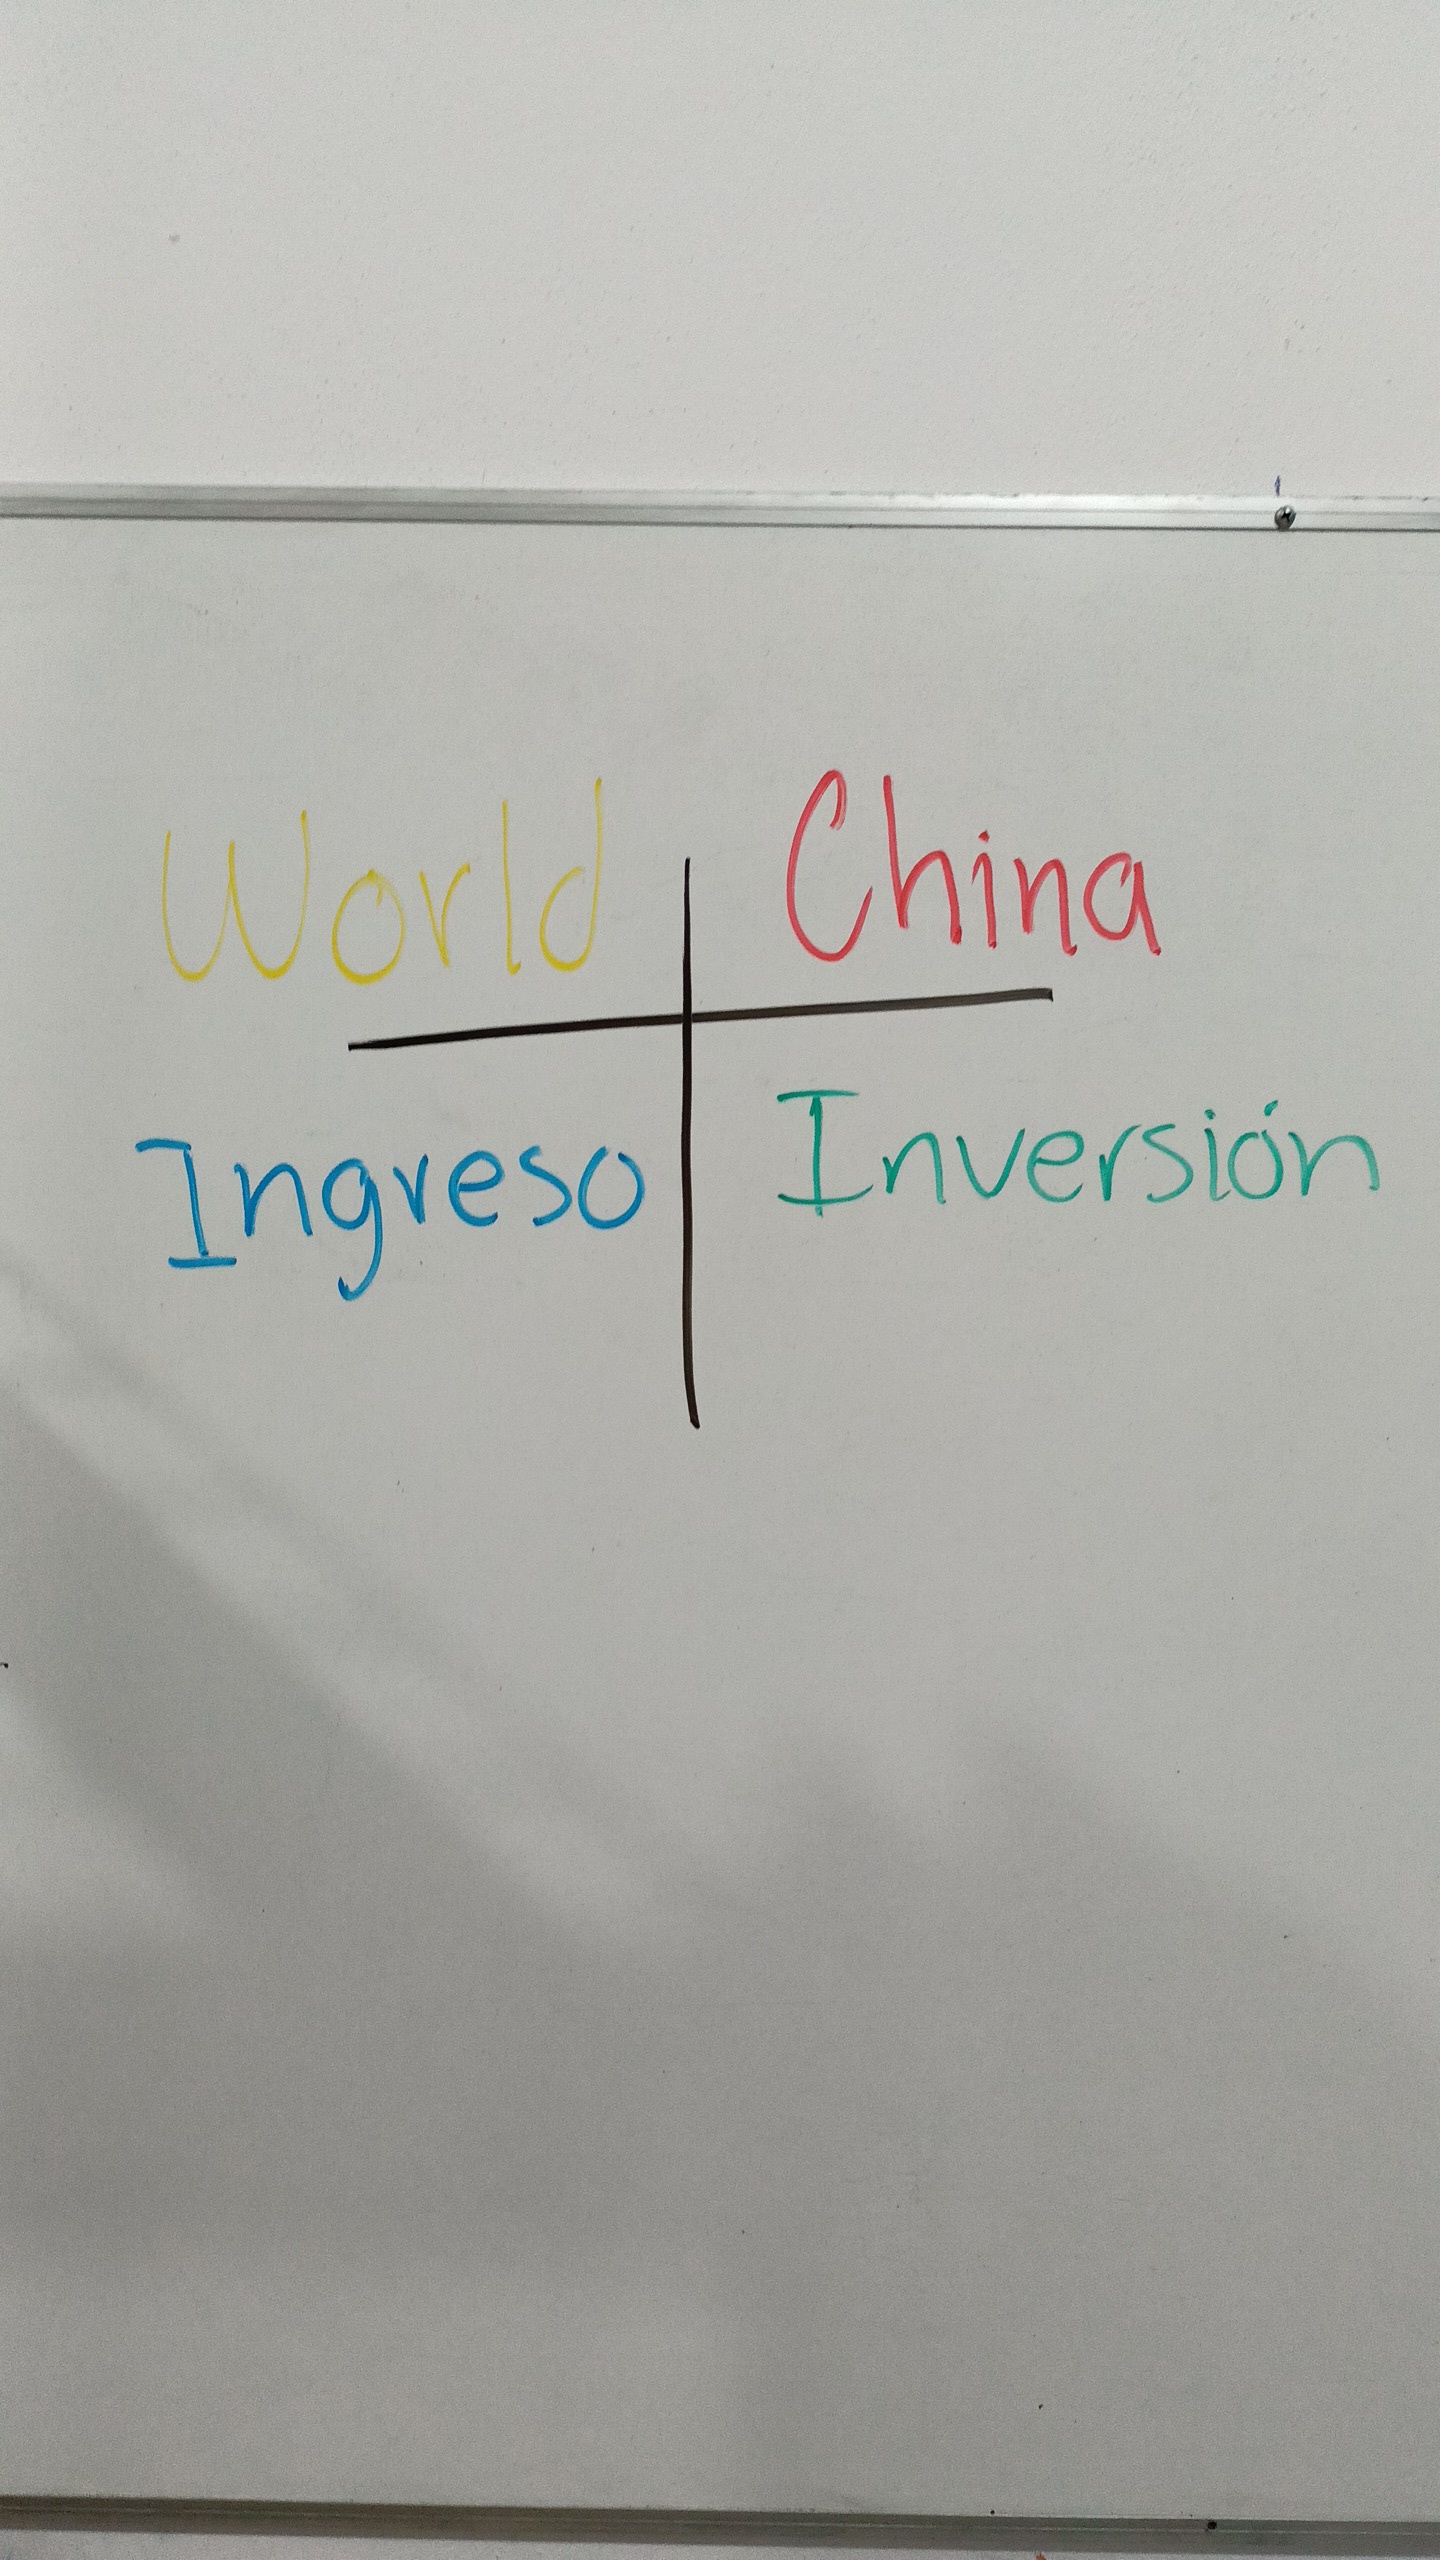 World China
Ingreso Inversión